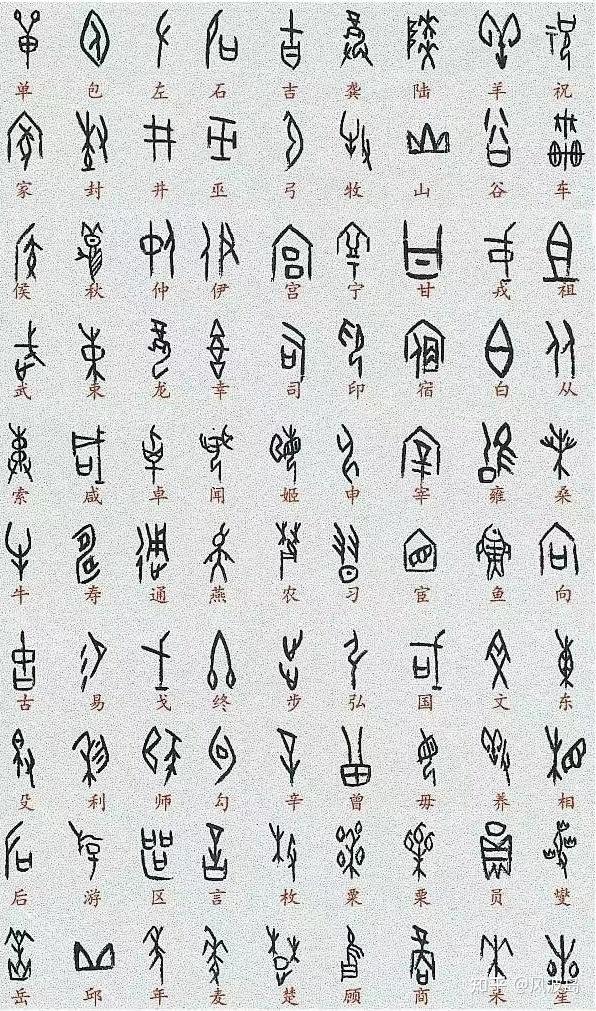 单 包 左 石 吉 龚 陆 羊 祝
家 封 井 巫 弓 牧 山 谷 车
侯 秋 仲 伊 宫 宁 甘 戎 祖
武 束 龙 幸 司 印 宿 白 从
索 咸 卓 闻 姬 申 宰 雍 桑
牛 寿 通 燕 农 习 宦 鱼 向
古 易 戈 终 步 弘 国 文 东
殳 利 师 勾 辛 曾 毋 养 相
后 游 区 言 枚 粟 栗 员 燮
岳 邱 年 麦 楚 顾 商 来 星
知乎 @风波岛